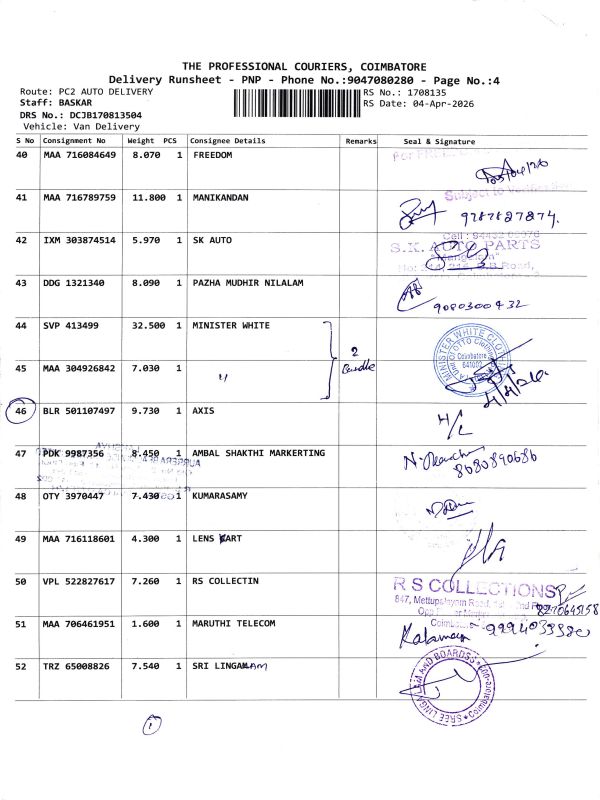 THE PROFESSIONAL COURIERS, COIMBATORE
Delivery Runsheet - PNP - Phone No.:9047080280 - Page No.:4
Route: PC2 AUTO DELIVERY RS No.: 1708135
Staff: BASKAR RS Date: 04-Apr-2026
DRS No.: DCJB170813504
Vehicle: Van Delivery
S No Consignment No Weight PCS Consignee Details Remarks Seal & Signature
40 MAA 716084649 8.070 1 FREEDOM
41 MAA 716789759 11.800 1 MANIKANDAN 9787827874.
42 IXM 303874514 5.970 1 SK AUTO S.K. AUTO PARTS
43 DDG 1321340 8.090 1 PAZHA MUDHIR NILALAM 9080300432
44 SVP 413499 32.500 1 MINISTER WHITE 2
MINISTER WHITE Coimbatore
45 MAA 304926842 7.030 1 4/4/26.
46 BLR 501107497 9.730 1 AXIS H/L
47 PDK 9987356 8.450 1 AMBAL SHAKTHI MARKERTING 8680890686
48 OTY 3970447 7.430 1 KUMARASAMY
49 MAA 716118601 4.300 1 LENS KART
50 VPL 522827617 7.260 1 RS COLLECTIN RS COLLECTIONS
847, Mettupalayam Road,
51 MAA 706461951 1.600 1 MARUTHI TELECOM
52 TRZ 65008826 7.540 1 SRI LINGAMAM
SREE LINGALAM AND BOARDSS Coimbatore
1